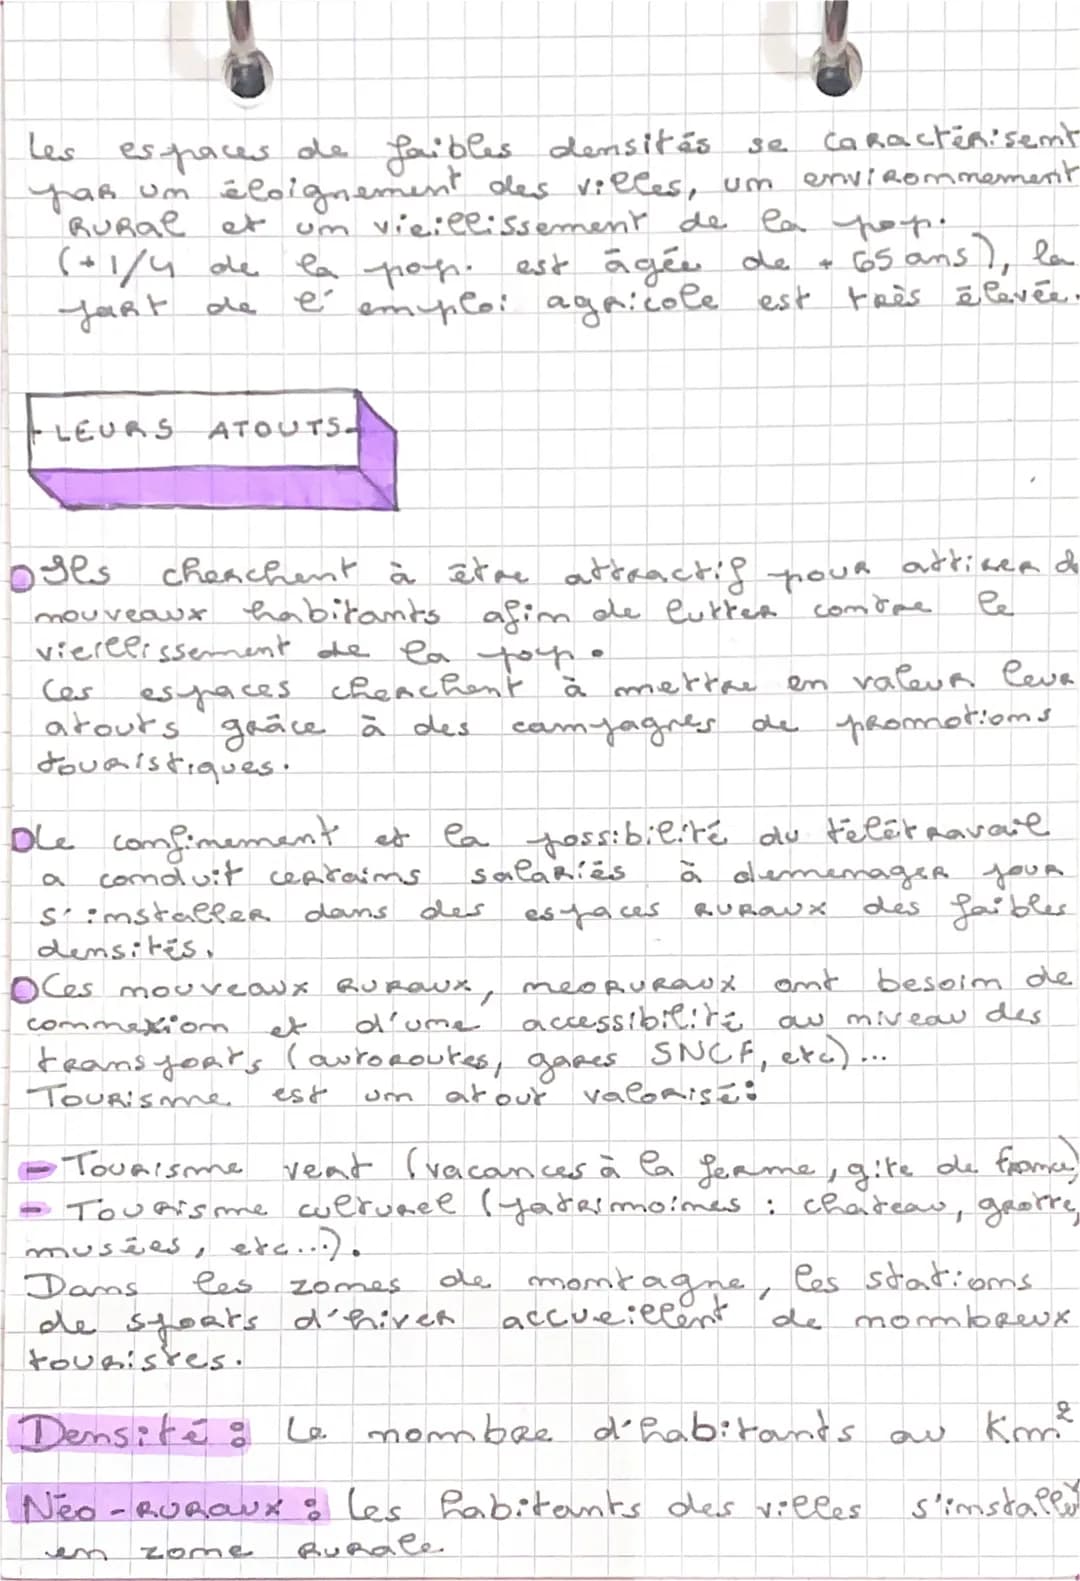 Les espaces de faibles densités se caractérisent
par un éloignement des villes, un environnement
rural et un vieillissement de la pop.
(+1/4 de la pop. est âgée de + 65 ans), la
part de l'emploi agricole est très élevée.
- LEURS ATOUTS -
Ils cherchent à être attractif pour attirer de
nouveaux habitants afin de lutter contre le
vieillissement de la pop.
Ces espaces cherchent à mettre en valeur leur
atouts grâce à des campagnes de promotions
touristiques.
Le confinement et la possibilité du télétravail
a conduit certains salariés à demenager pour
s'installer dans des espaces ruraux des faibles
densités.
Ces nouveaux ruraux, neoruraux ont besoin de
connexion et d'une accessibilité au niveau des
transports (autoroutes, gares SNCF, etc)...
Tourisme est un atout valorisé:
- Tourisme vert (vacances à la ferme, gite de france)
- Tourisme culturel (patrimoines : chateau, grotte,
musées, etc...).
Dans les zones de montagne, les stations
de sports d'hiver accueillent de nombreux
touristes.
Densité : Le nombre d'habitants au Km²
Néo-ruraux : les habitants des villes
en zone rurale.